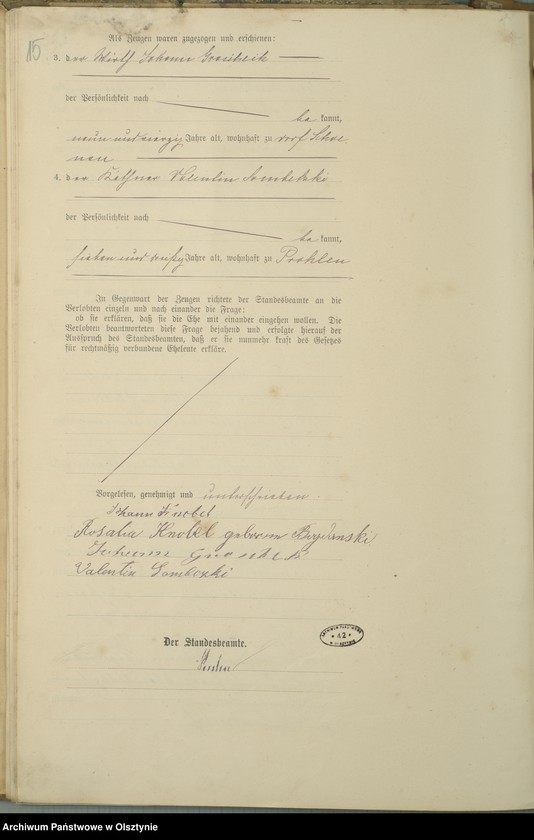 15
Als Zeugen waren zugezogen und erschienen:
3. der Wirth Johann
der Persönlichkeit nach
be kannt,
neun und vierzig Jahre alt, wohnhaft zu Dorf Schoe
nau
4. der Käthner Valentin
der Persönlichkeit nach
be kannt,
sieben und Jahre alt, wohnhaft zu Prohlen
In Gegenwart der Zeugen richtete der Standesbeamte an die
Verlobten einzeln und nach einander die Frage:
ob sie erklären, daß sie die Ehe mit einander eingehen wollen. Die
Verlobten beantworteten diese Frage bejahend und erfolgte hierauf der
Ausspruch des Standesbeamten, daß er sie nunmehr kraft des Gesetzes
für rechtmäßig verbundene Eheleute erkläre.
Vorgelesen, genehmigt und unterschrieben.
Johann Knobel
Rosalia Knobel geborene
Johann
Valentin
Der Standesbeamte.
* 42 *
Archiwum Państwowe w Olsztynie